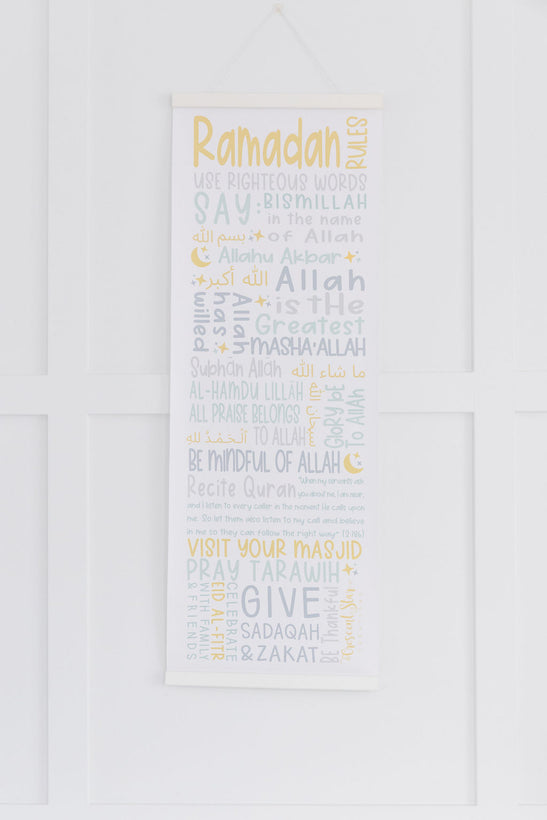 Ramadan
RULES
USE RIGHTEOUS WORDS
SAY: BISMILLAH
in the name
بسم الله of Allah
Allahu Akbar
الله أكبر Allah
is tHe
Greatest
Allah
has
willed
MASHA'ALLAH
Subhān Allāh ما شاء الله
AL-HAMDU LILLĀH
سبحان الله
GLORY bE
TO AllAh
ALL PRAISE BELONGS
الْحَمْدُ لله TO ALLAH
BE MINDFUL OF ALLAH
Recite Quran "When my servants ask
you about me, I am near,
and I listen to every caller in the moment He calls upon
me. So let them also listen to my call and believe
in me so they can follow the right way" (2:186)
VISIT YOUR MASJID
PRAY TARAWIH
CELEBRATE
EID AL-FITR
WITH FAMILY
& FRIENDS
GIVE
SADAQAH,
& ZAKAT
BE Thankful